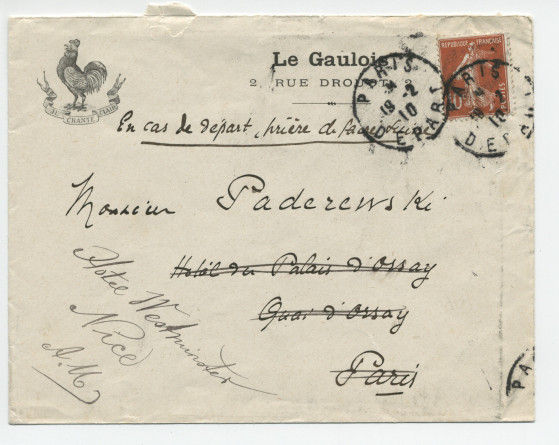 Le Gaulois
2, RUE DROUOT, 2
JE CHANTE CLAIR
RÉPUBLIQUE FRANÇAISE
10
POSTES
PARIS
19 -2
10
DEPART
PARIS
DEPART
En cas de départ, prière de faire suivre
Monsieur Paderewski
Hotel du Palais d'Orsay
Quai d'Orsay
Paris
Hotel Westminster
Nice
A. M.
PA